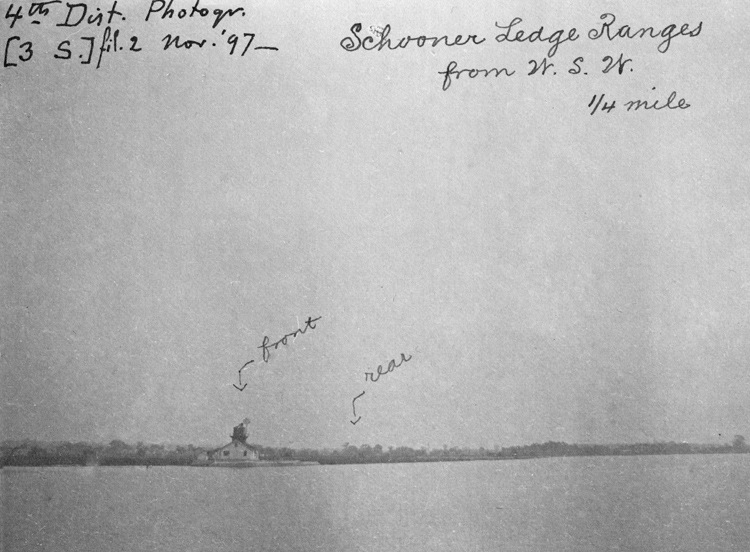 4th Dist. Photogr.
[3 S.] fil. 2 Nov. '97—
Schooner Ledge Ranges
from W. S. W.
1/4 mile
front
rear